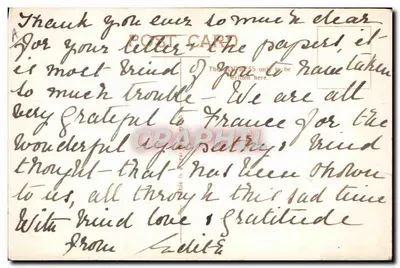 Thank you ever so much dear
for your letter & the papers, it
is most kind of you to have taken
so much trouble - We are all
very grateful to France for the
wonderful sympathy & kind
thought - that has been shown
to us, all through this sad time
With kind love & gratitude
from Edith
POST CARD